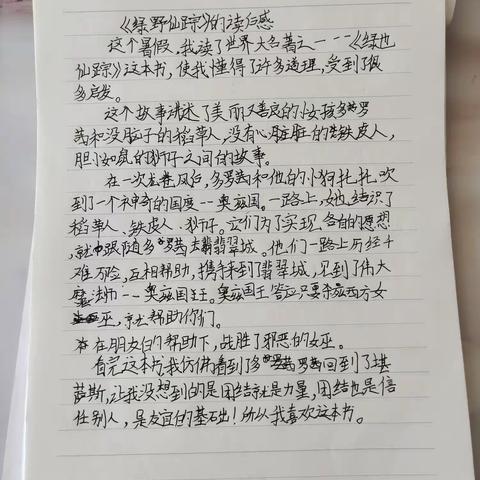 《绿野仙踪》的读后感
这个暑假,我读了世界大名著之一---《绿也
仙踪》这本书,使我懂得了许多道理,受到了很
多启发。
这个故事讲述了美丽又善良的小女孩多罗
茜和没脑子的稻草人,没有心脏的铁皮人,
胆小如鼠的狮子之间的故事。
在一次龙卷风后,多罗茜和他的小狗托托,吹
到了一个神奇的国度--奥兹国。一路上,她结识了
稻草人、铁皮人、狮子。它们为了实现各自的愿想
就跟随多罗茜去翡翠城。他们一路上历经千
难万险,互相帮助,携手来到了翡翠城,见到了伟大
魔法师--奥兹国王。奥兹国王答应只要杀兹西方女
巫,就帮助你们。
在朋友白的帮助下,战胜了邪恶的女巫。
看完这本书,我仿佛看到了多罗茜回到了堪
萨斯,让我没想到的是团结就是力量,团结也是信
任别人,是友宜的基础!所以我喜欢这本书。